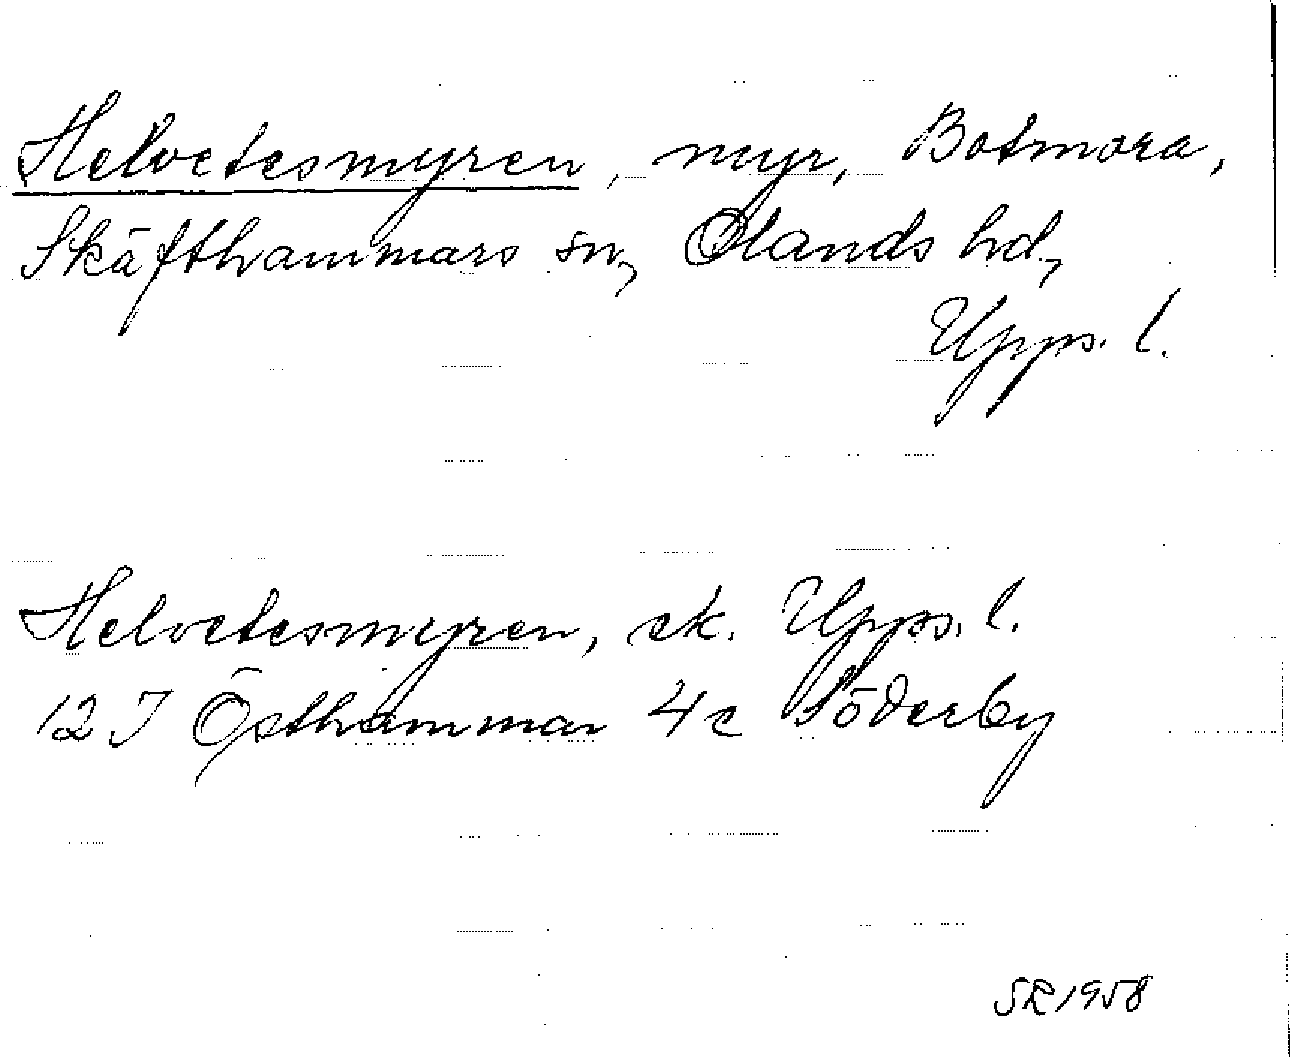 Helvetesmyren, myr, Botmora,
Skäfthammars sn, Olands hd,
Upps. l.
Helvetesmyren, ek. Upps. l.
12 I Östhammar 4 c Söderby
SR 1958